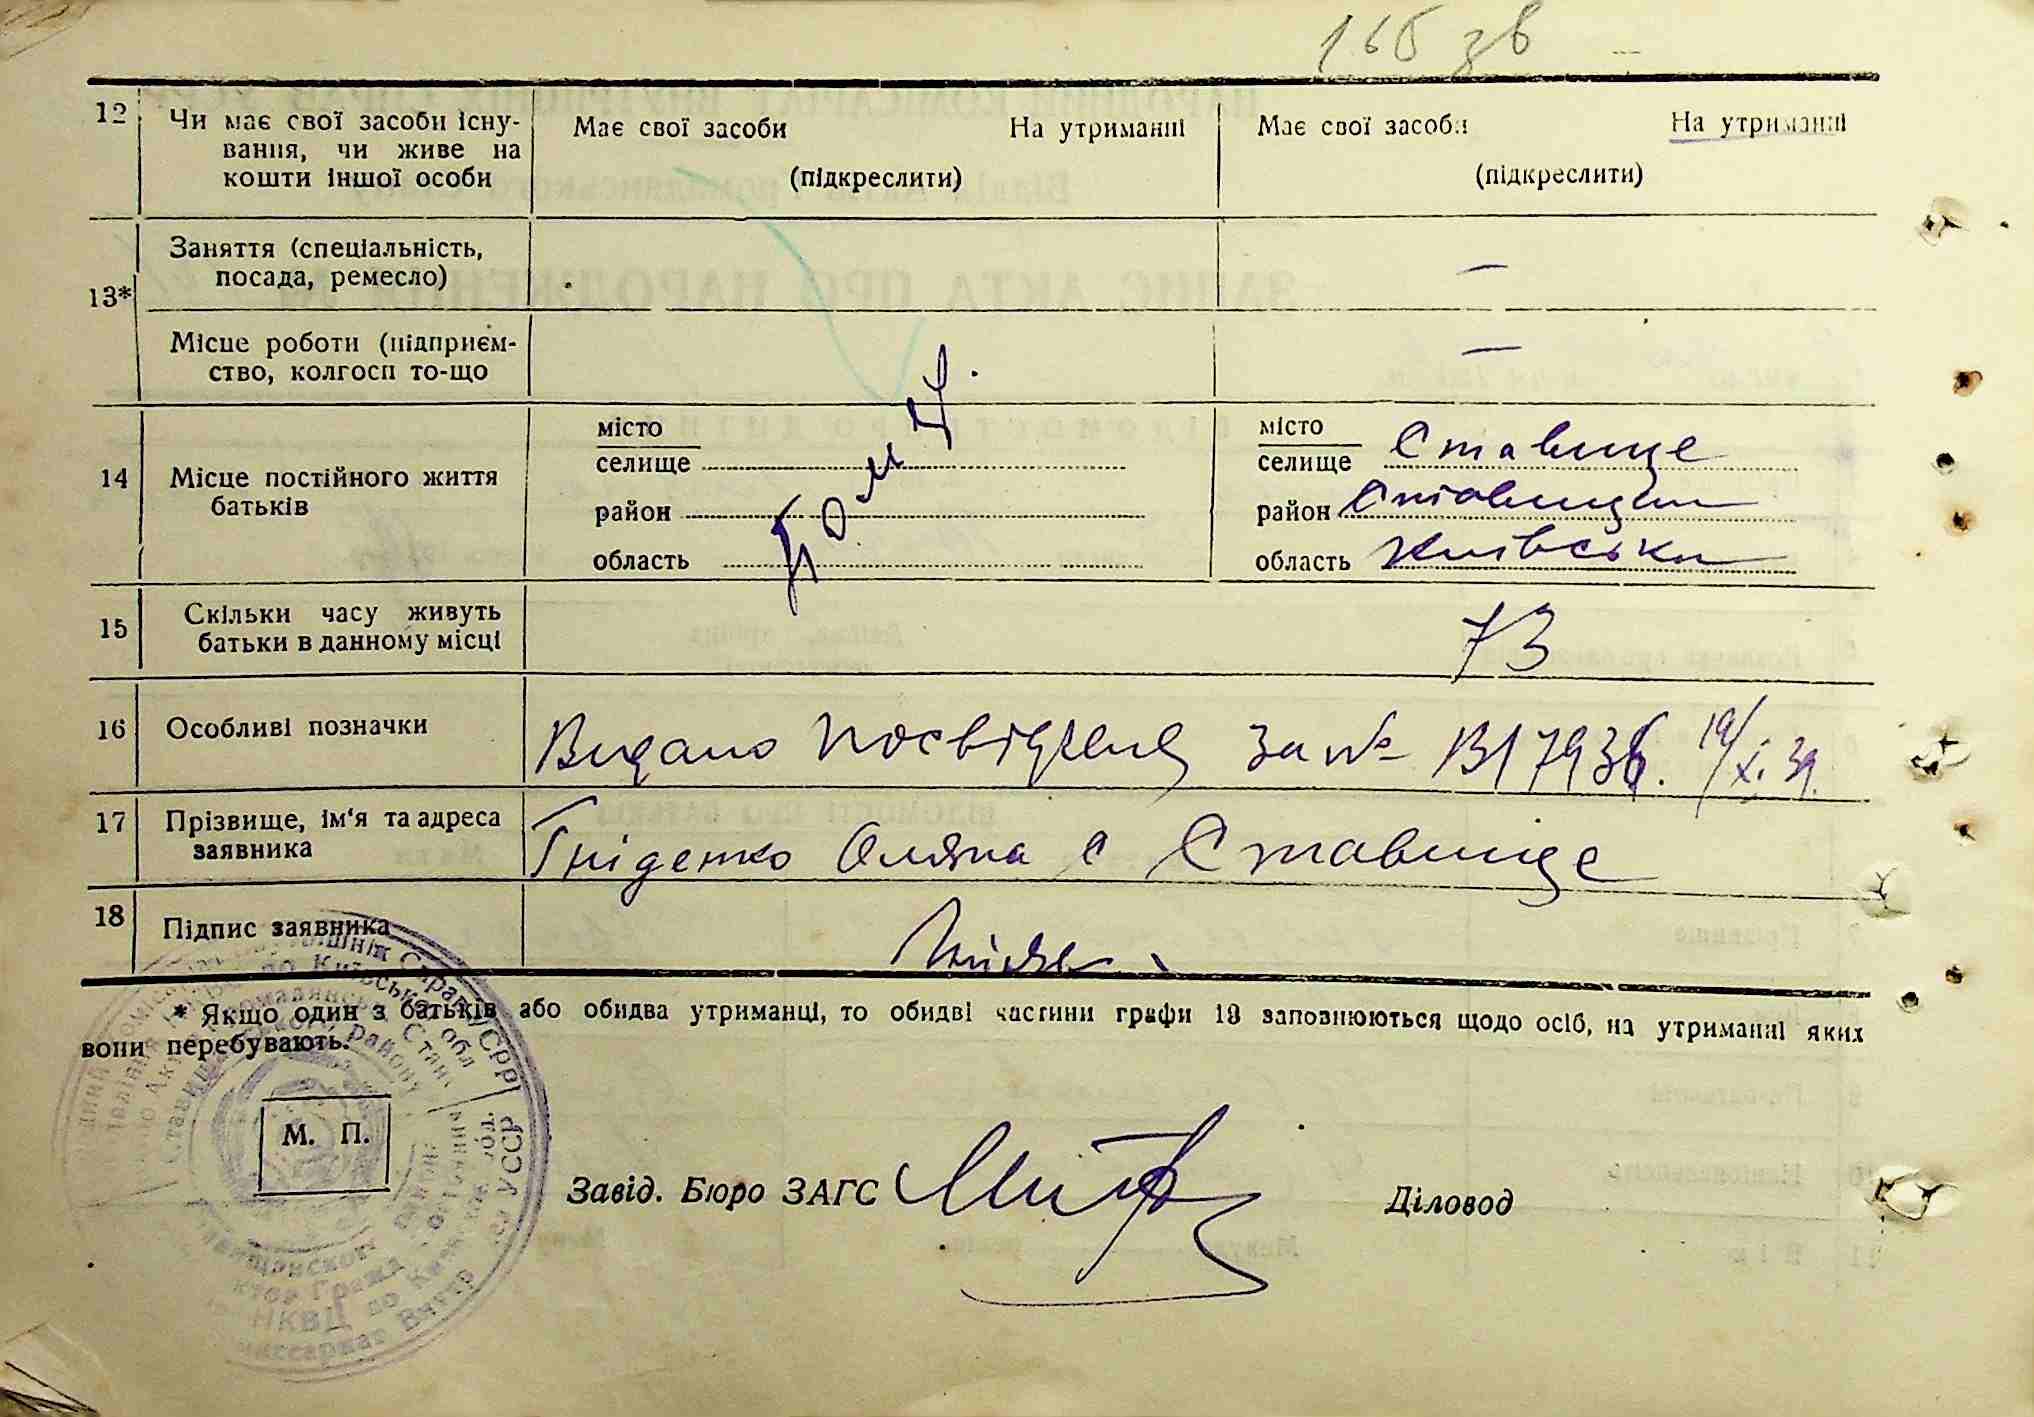 165 зв
12 Чи має свої засоби існу-
вання, чи живе на
кошти іншої особи
Має свої засоби На утриманні
(підкреслити)
Має свої засоби На утриманні
(підкреслити)
13*
Заняття (спеціальність,
посада, ремесло)
—
Місце роботи (підприєм-
ство, колгосп то-що
—
14 Місце постійного життя
батьків
місто
селище
район
область
місто
селище Ставище
район Ставищан
область Київська
15 Скільки часу живуть
батьки в данному місці
16 Особливі позначки
Видано посвідченя за № 19/XI.39.
17 Прізвище, ім'я та адреса
заявника
Гніденко Оляна с Ставище
18 Підпис заявника
* Якщо один з батьків або обидва утриманці, то обидві частини графи 13 заповнюються щодо осіб, на утриманні яких
вони перебувають.
М. П.
Завід. Бюро ЗАГС
Діловод